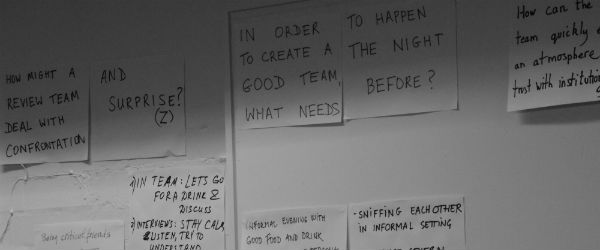 HOW MIGHT A
REVIEW TEAM
DEAL WITH
CONFRONTATION
AND
SURPRISE?
(Z)
IN ORDER
TO CREATE A
GOOD TEAM,
WHAT NEEDS
TO HAPPEN
THE NIGHT
BEFORE?
How can the
team quickly
an atmosphere
trust with
Being critical friends
1) IN TEAM: LETS GO
FOR A DRINK &
DISCUSS
2) INTERVIEWS: STAY CALM,
LISTEN, TRY TO
UNDERSTAND
INFORMAL EVENING WITH
GOOD FOOD AND DRINK
- SNIFFING EACH OTHER
IN INFORMAL SETTING